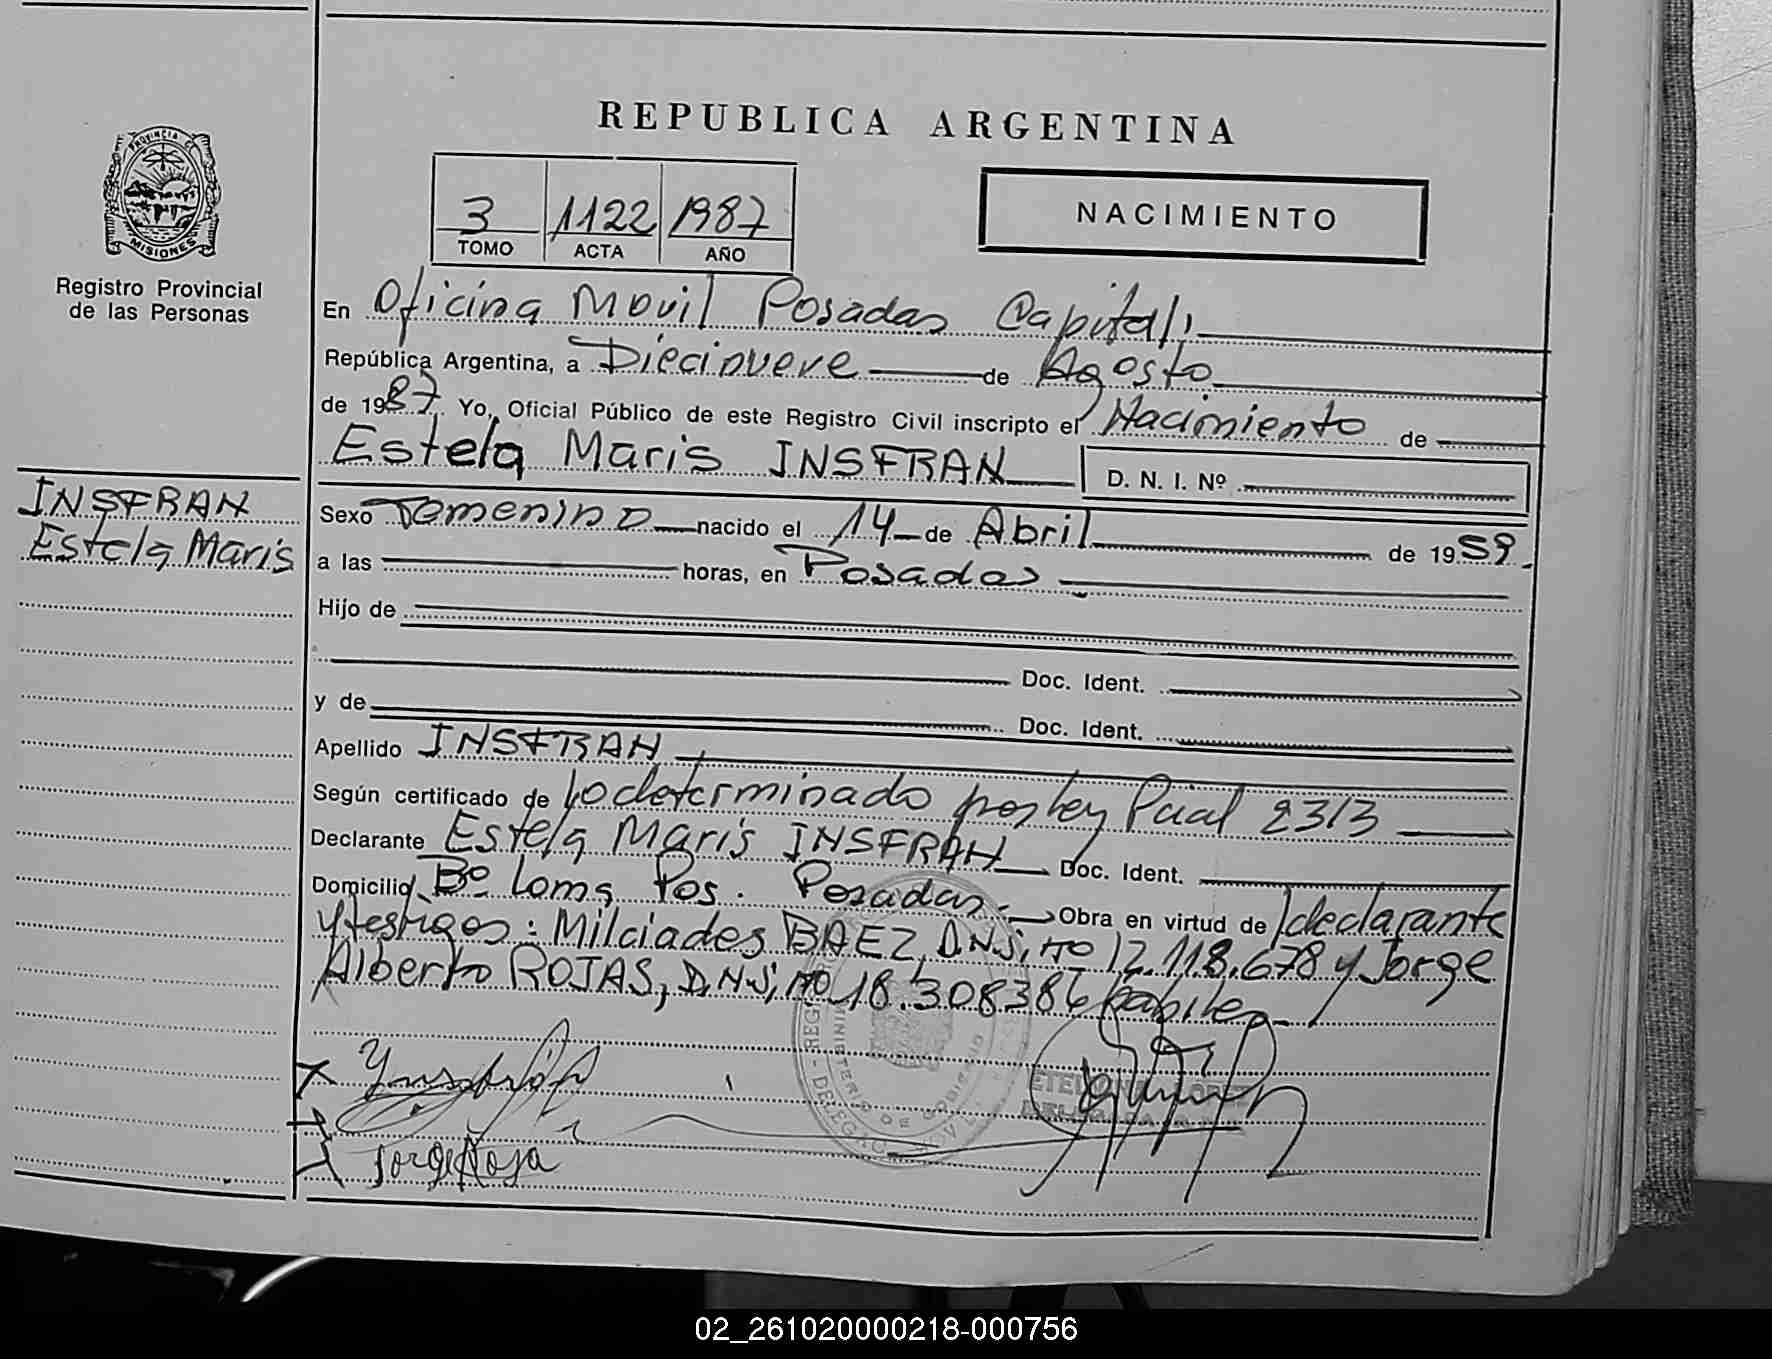 REPUBLICA ARGENTINA
PROVINCIA DE
MISIONES
Registro Provincial
de las Personas
3 1122 1987
TOMO ACTA AÑO
NACIMIENTO
En Oficina Movil Posadas Capital;
República Argentina, a Diecinueve de Agosto
de 1987. Yo, Oficial Público de este Registro Civil inscripto el Nacimiento de
Estela Maris INSFRAN D. N. I. Nº
INSFRAN
Estela Maris
Sexo Femenino nacido el 14 de Abril de 1959
a las horas, en Posadas
Hijo de
Doc. Ident.
y de Doc. Ident.
Apellido INSFRAN
Según certificado de lo determinado por Ley Pcial 2313
Declarante Estela Maris INSFRAN Doc. Ident.
Domicilio Bº Loma Pos. Posadas. Obra en virtud de declarante
y testigos: Milciades BAEZ, D.N.i, nº 12.118.678 y Jorge
Alberto ROJAS, D.N.i, nº 18.308386 habiles
MINISTERIO DE GOBIERNO
Jorge Roja
02_261020000218-000756